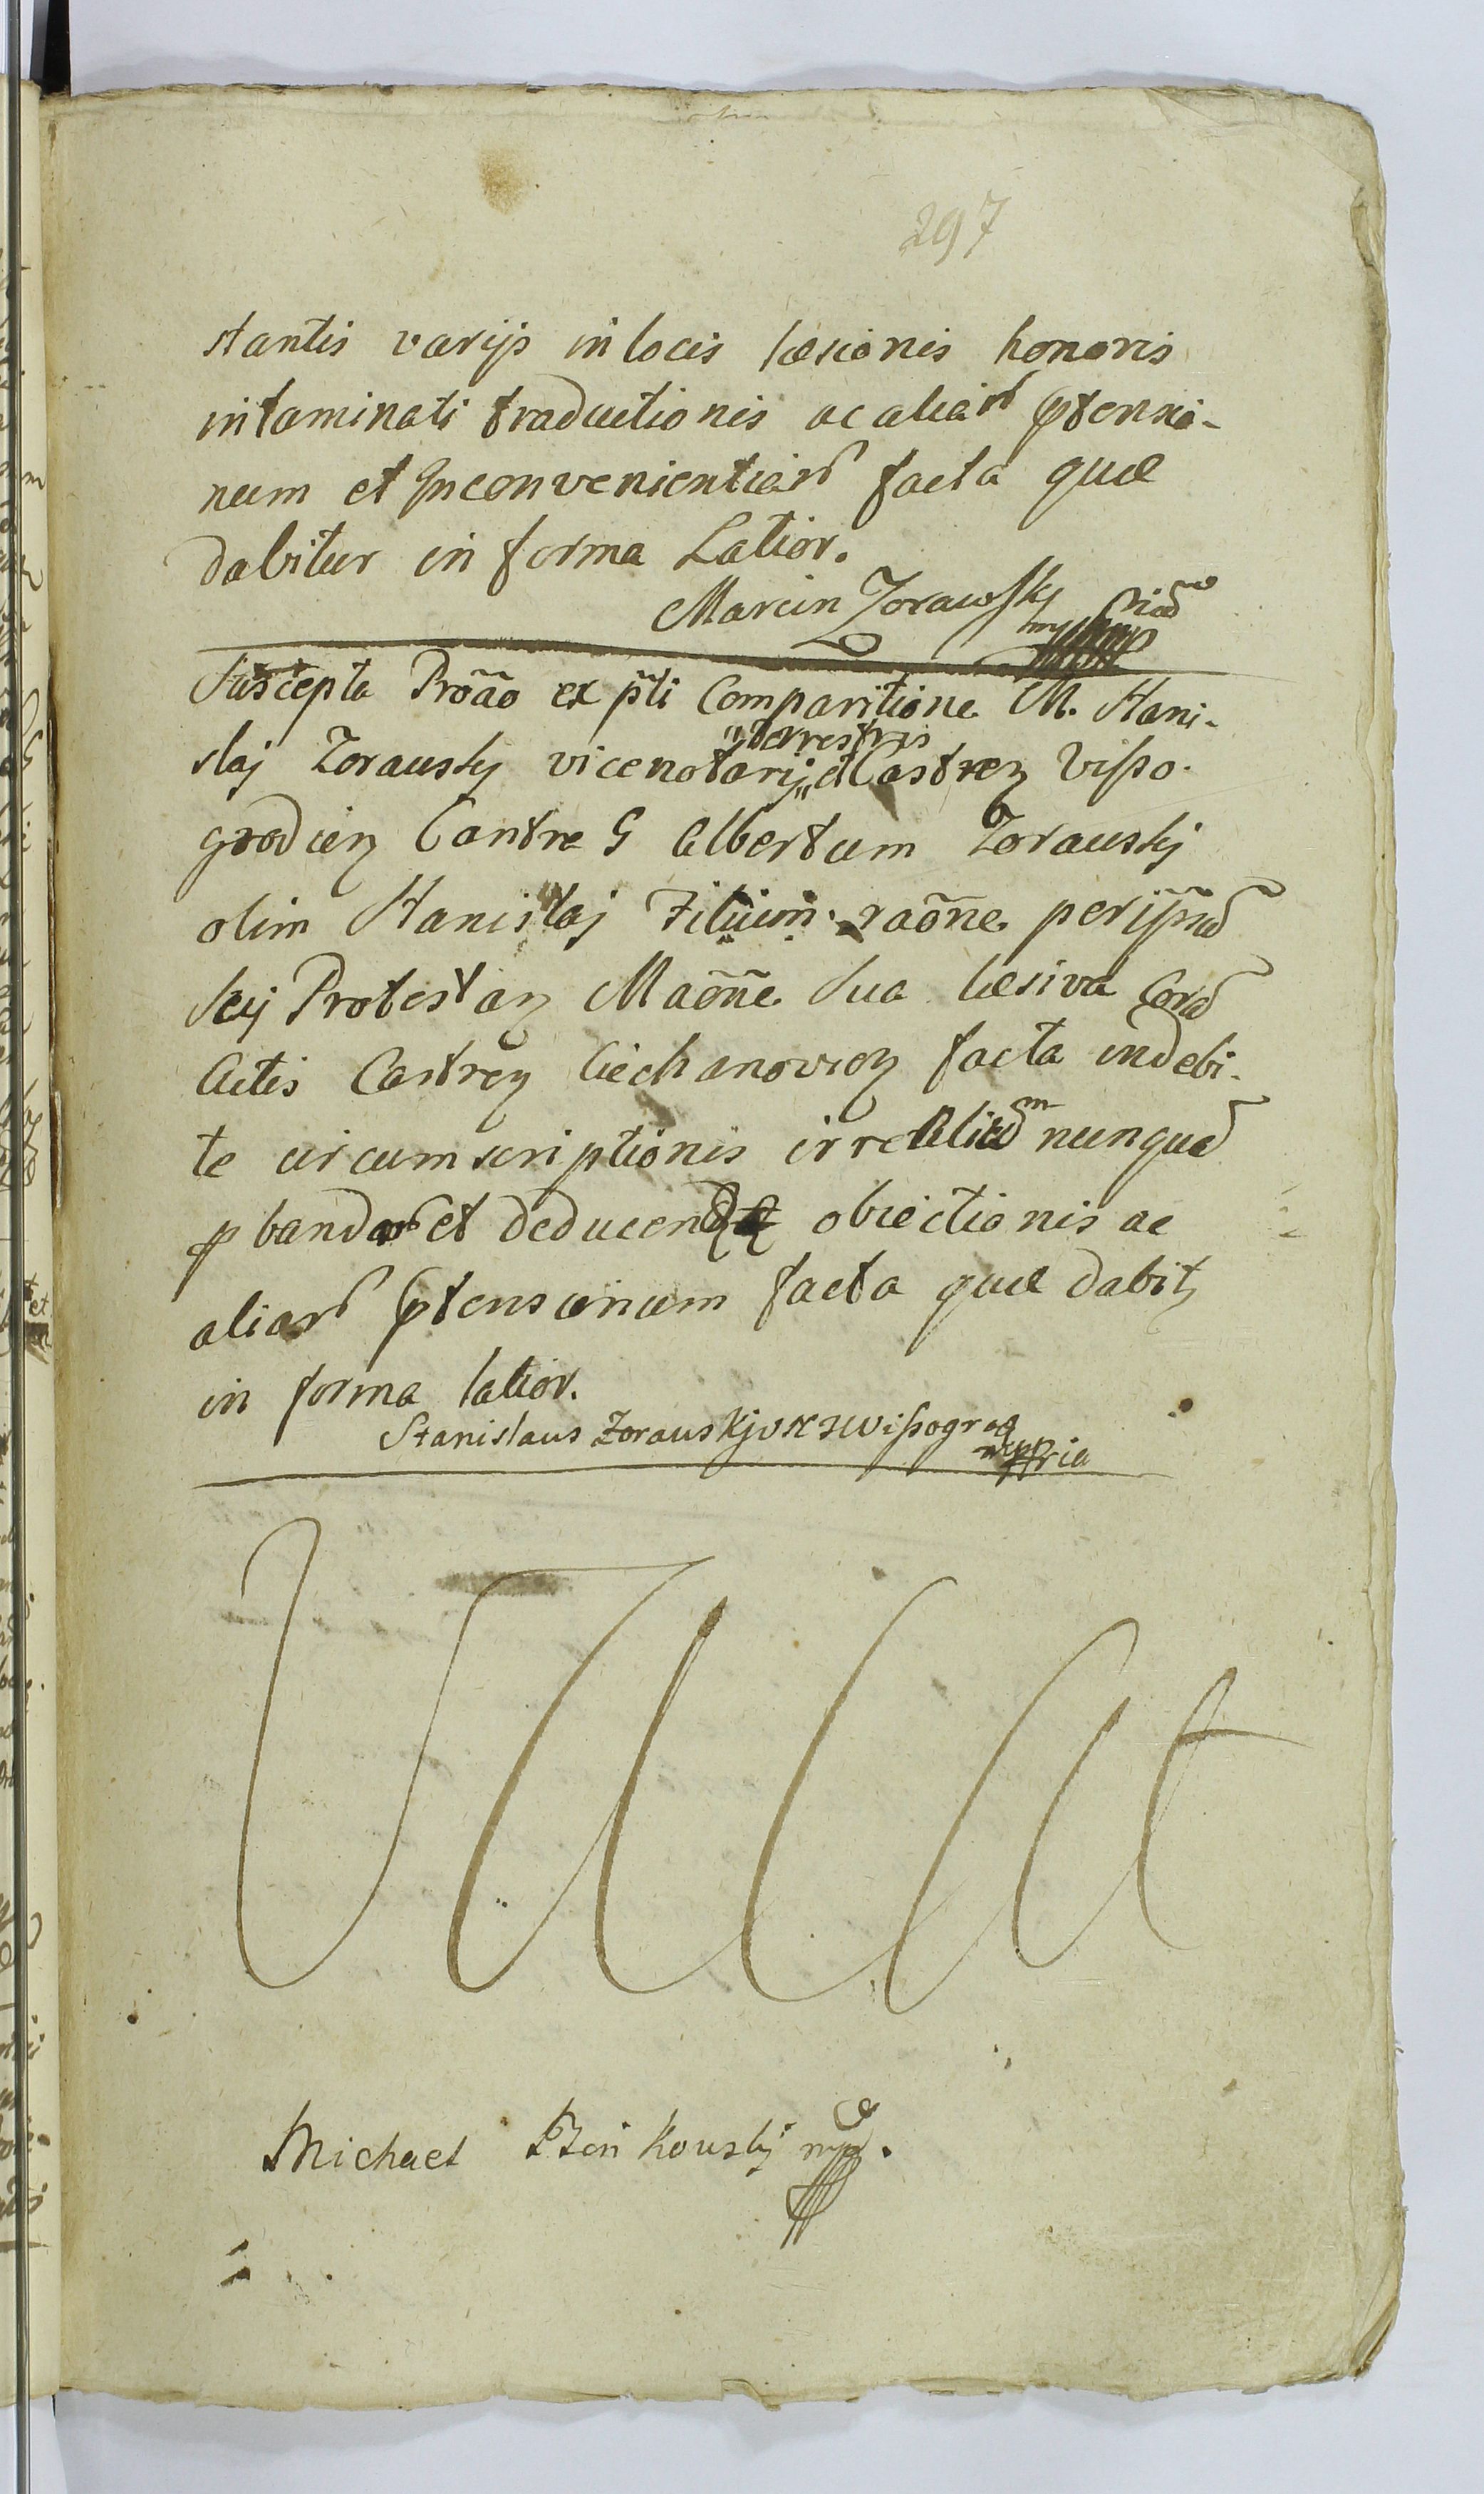 297
stantis varijs in locis læsionis honoris
intaminati traductionis ac aliar ptensio-
num et Inconvenientiar facta quæ
dabitur in forma Latior.
Marcin Zorawsky mp
Suscepta Proãõ ex pñti Comparitione M. Stani-
slaj Zorausky vicenotarij "Terrestris et Castren Visso-
grodien Contra G Albertum Zorauskj
olim Stanislaj Filium raõne
Protestan Maõne Sua læsiva Corã
Actis Castren Ciechanovien facta indebi-
te circumscriptionis nunquã
pbandar et deducen obiectionis ac
aliar ptensionum facta quæ dabit
in forma latior.
Stanislaus Zorauskj Wissogrod
mppria
VACAt
Michael mp.